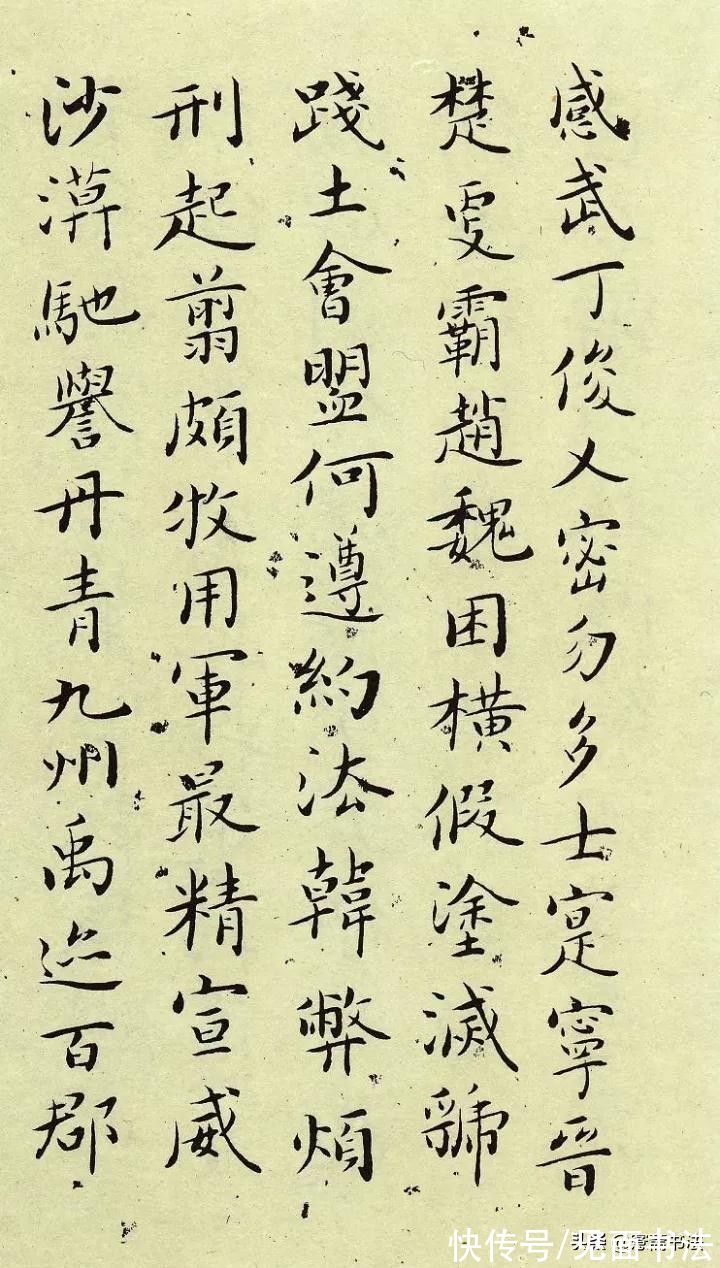 感武丁俊乂密勿多士寔寧晉
楚更霸趙魏困橫假塗滅虢
踐土會盟何遵約法韓弊煩
刑起翦頗牧用軍最精宣威
沙漠馳譽丹青九州禹迹百郡
快传号/见面书法